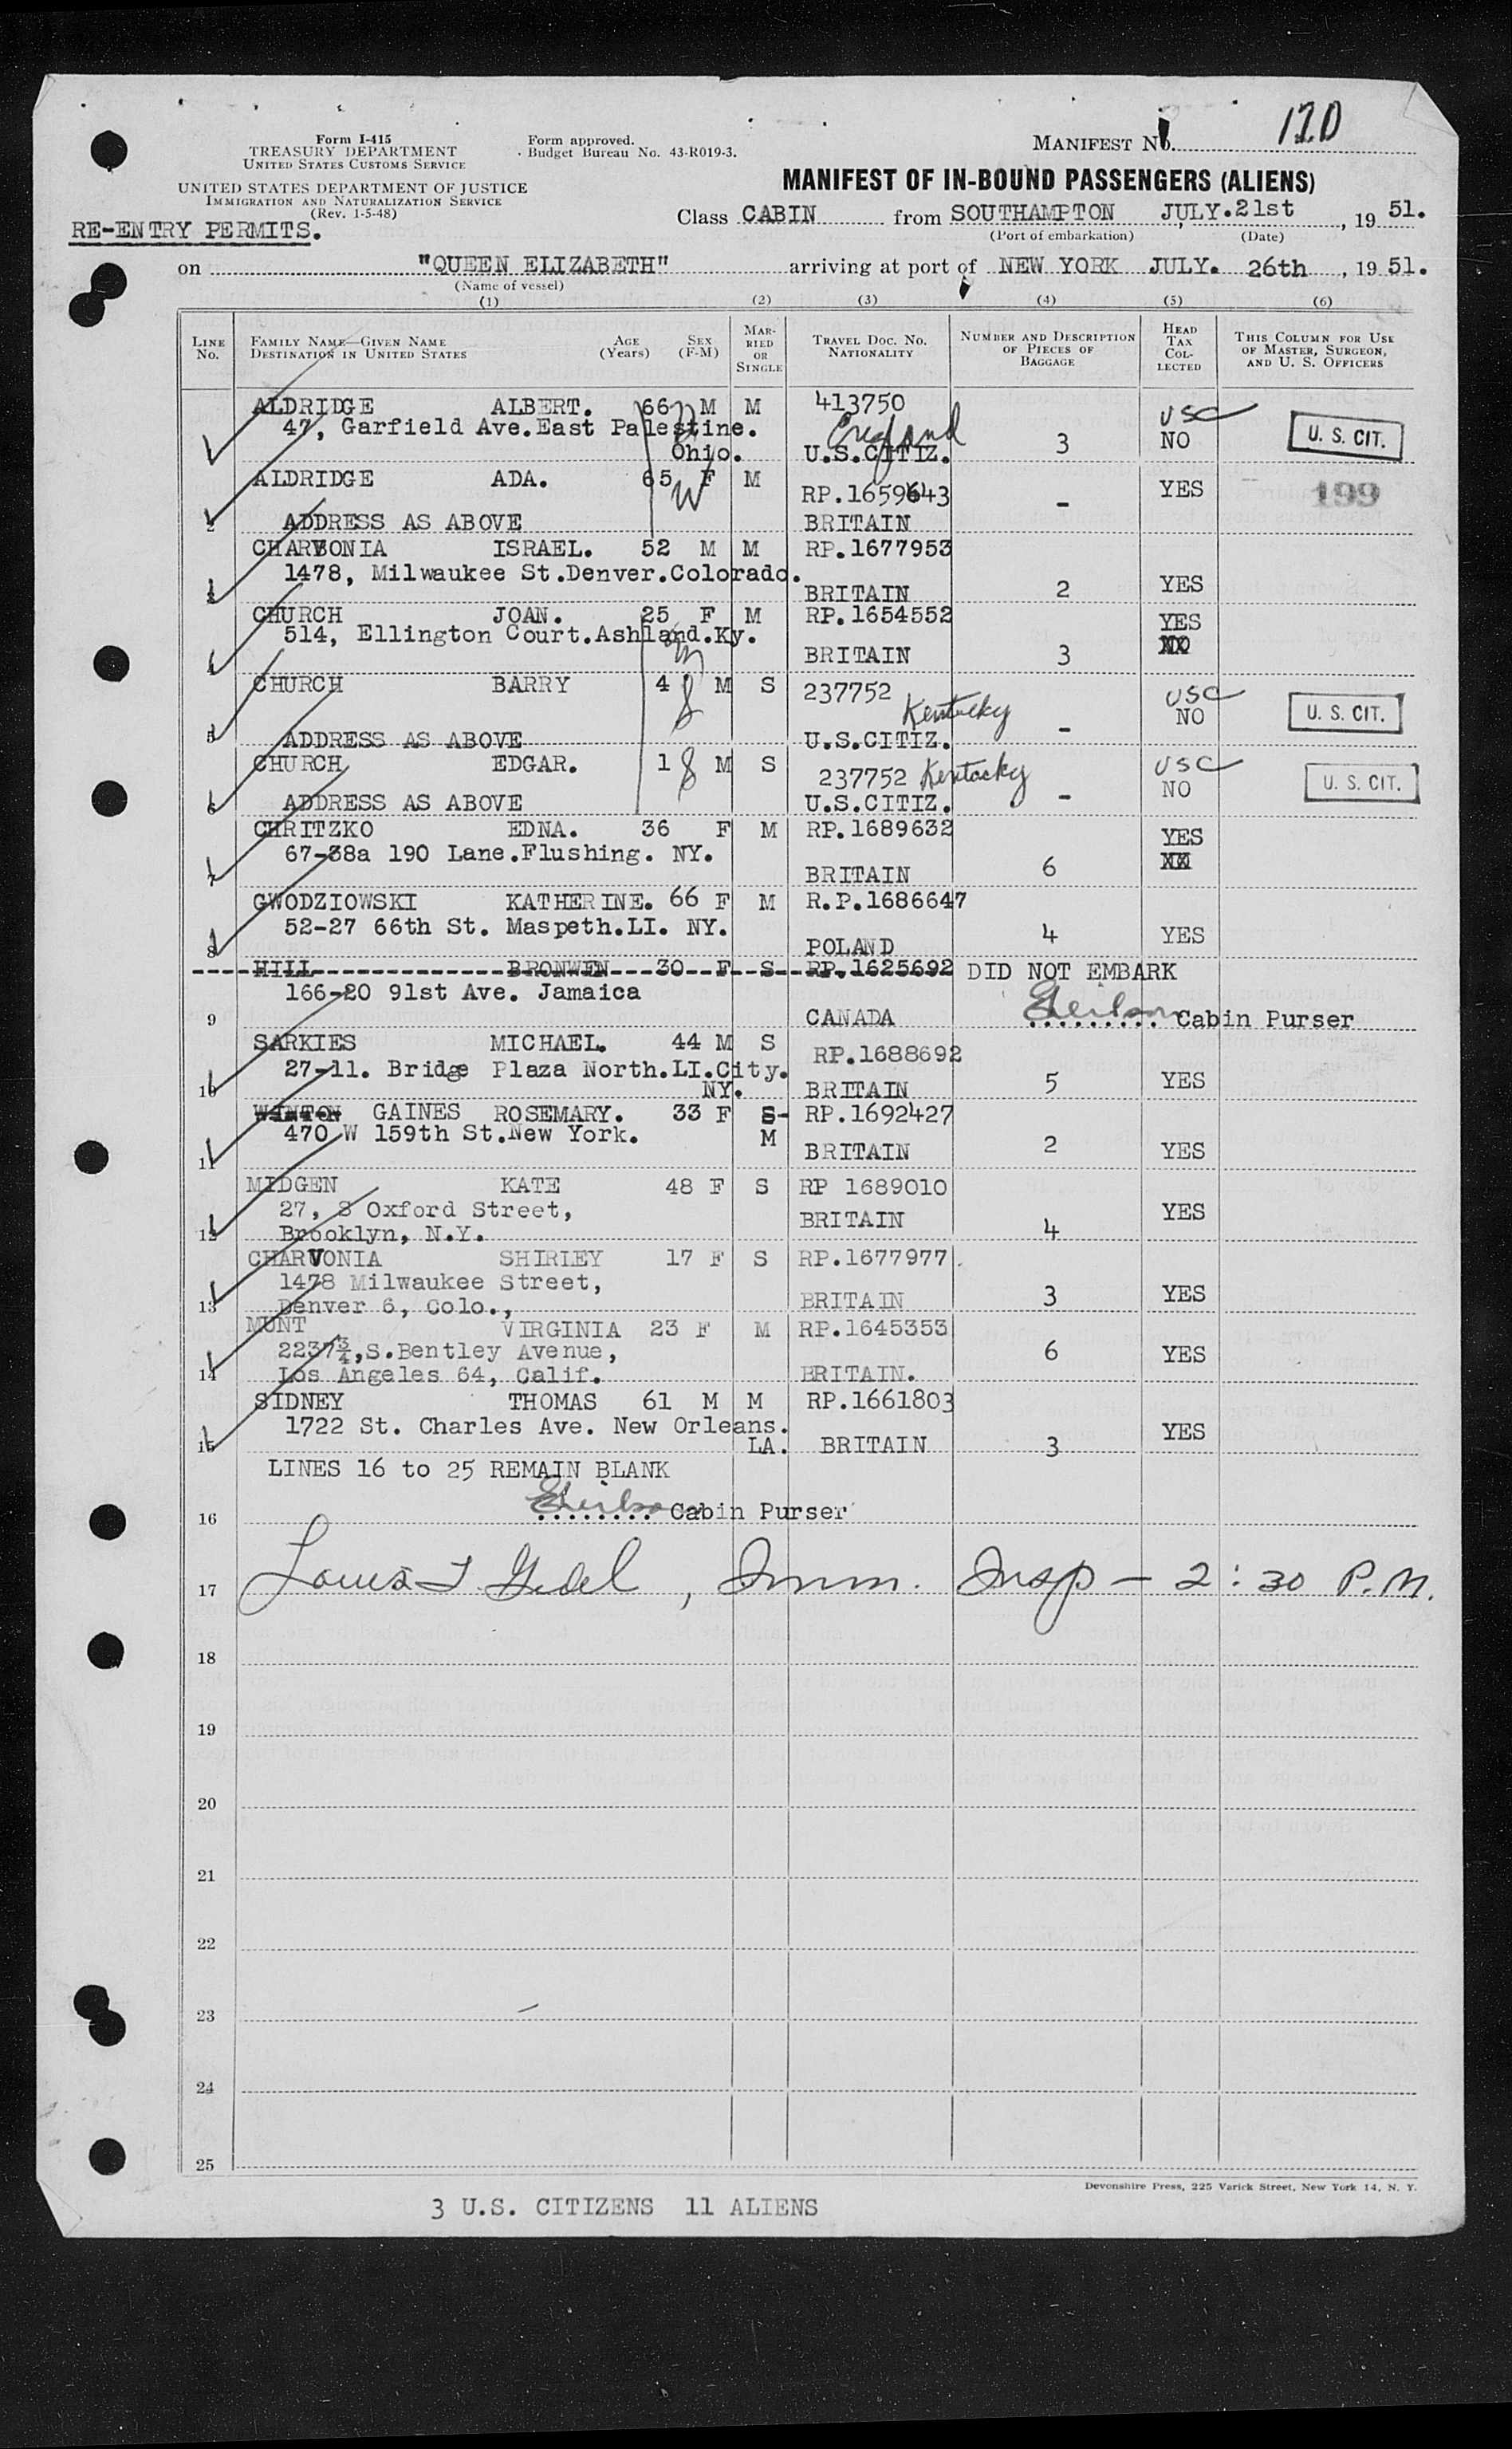 Form I-415
TREASURY DEPARTMENT
UNITED STATES CUSTOMS SERVICE
UNITED STATES DEPARTMENT OF JUSTICE
IMMIGRATION AND NATURALIZATION SERVICE
(Rev. 1-5-48)
RE-ENTRY PERMITS.
Form approved.
Budget Bureau No. 43-R019-3.
MANIFEST No. 120
MANIFEST OF IN-BOUND PASSENGERS (ALIENS)
Class CABIN from SOUTHAMPTON, JULY.21st, 1951.
(Port of embarkation) (Date)
on "QUEEN ELIZABETH" arriving at port of NEW YORK JULY. 26th, 1951.
(Name of vessel)
(1) (2) (3) (4) (5) (6)
LINE No. FAMILY NAME—GIVEN NAME DESTINATION IN UNITED STATES AGE (Years) SEX (F-M) MARRIED OR SINGLE TRAVEL DOC. NO. NATIONALITY NUMBER AND DESCRIPTION OF PIECES OF BAGGAGE HEAD TAX COLLECTED THIS COLUMN FOR USE OF MASTER, SURGEON, AND U. S. OFFICERS
ALDRIDGE ALBERT. 66 M M 413750 USC
47, Garfield Ave.East Palestine. England 3 NO U. S. CIT.
Ohio. U.S.CITIZ.
ALDRIDGE ADA. 65 F M RP.1659643 - YES 199
W
2 ADDRESS AS ABOVE BRITAIN
CHARVONIA ISRAEL. 52 M M RP.1677953
1478, Milwaukee St.Denver.Colorado. BRITAIN 2 YES
CHURCH JOAN. 25 F M RP.1654552 YES
514, Ellington Court.Ashland.Ky. NO
4 BRITAIN 3
CHURCH BARRY 4 M S 237752 Kentucky USC
NO U. S. CIT.
5 ADDRESS AS ABOVE U.S.CITIZ. -
CHURCH EDGAR. 1 M S 237752 Kentucky USC
NO U. S. CIT.
6 ADDRESS AS ABOVE U.S.CITIZ. -
CHRITZKO EDNA. 36 F M RP.1689632 YES
67-38a 190 Lane.Flushing. NY.
7 BRITAIN 6
GWODZIOWSKI KATHERINE. 66 F M R.P.1686647
52-27 66th St. Maspeth.LI. NY. 4 YES
8 POLAND
HILL BRONWEN 30 F S RP.1625692 DID NOT EMBARK
166-20 91st Ave. Jamaica
9 CANADA ......... Cabin Purser
SARKIES MICHAEL. 44 M S RP.1688692
27-11. Bridge Plaza North.LI.City. 5 YES
10 NY. BRITAIN
WINTON GAINES ROSEMARY. 33 F S- RP.1692427
470 W 159th St.New York. M 2 YES
11 BRITAIN
MIDGEN KATE 48 F S RP 1689010
27, S Oxford Street, BRITAIN YES
12 Brooklyn, N.Y. 4
CHARVONIA SHIRLEY 17 F S RP.1677977.
1478 Milwaukee Street, 3 YES
13 Denver 6, Colo., BRITAIN
MUNT VIRGINIA 23 F M RP.1645353
2237¾,S.Bentley Avenue, 6 YES
14 Los Angeles 64, Calif. BRITAIN.
SIDNEY THOMAS 61 M M RP.1661803
1722 St. Charles Ave. New Orleans. YES
15 LA. BRITAIN 3
LINES 16 to 25 REMAIN BLANK
16 ........ Cabin Purser
17 Louis Gidel, Imm. Insp - 2:30 P.M.
18
19
20
21
22
23
24
25
Devonshire Press, 225 Varick Street, New York 14, N. Y.
3 U.S. CITIZENS 11 ALIENS